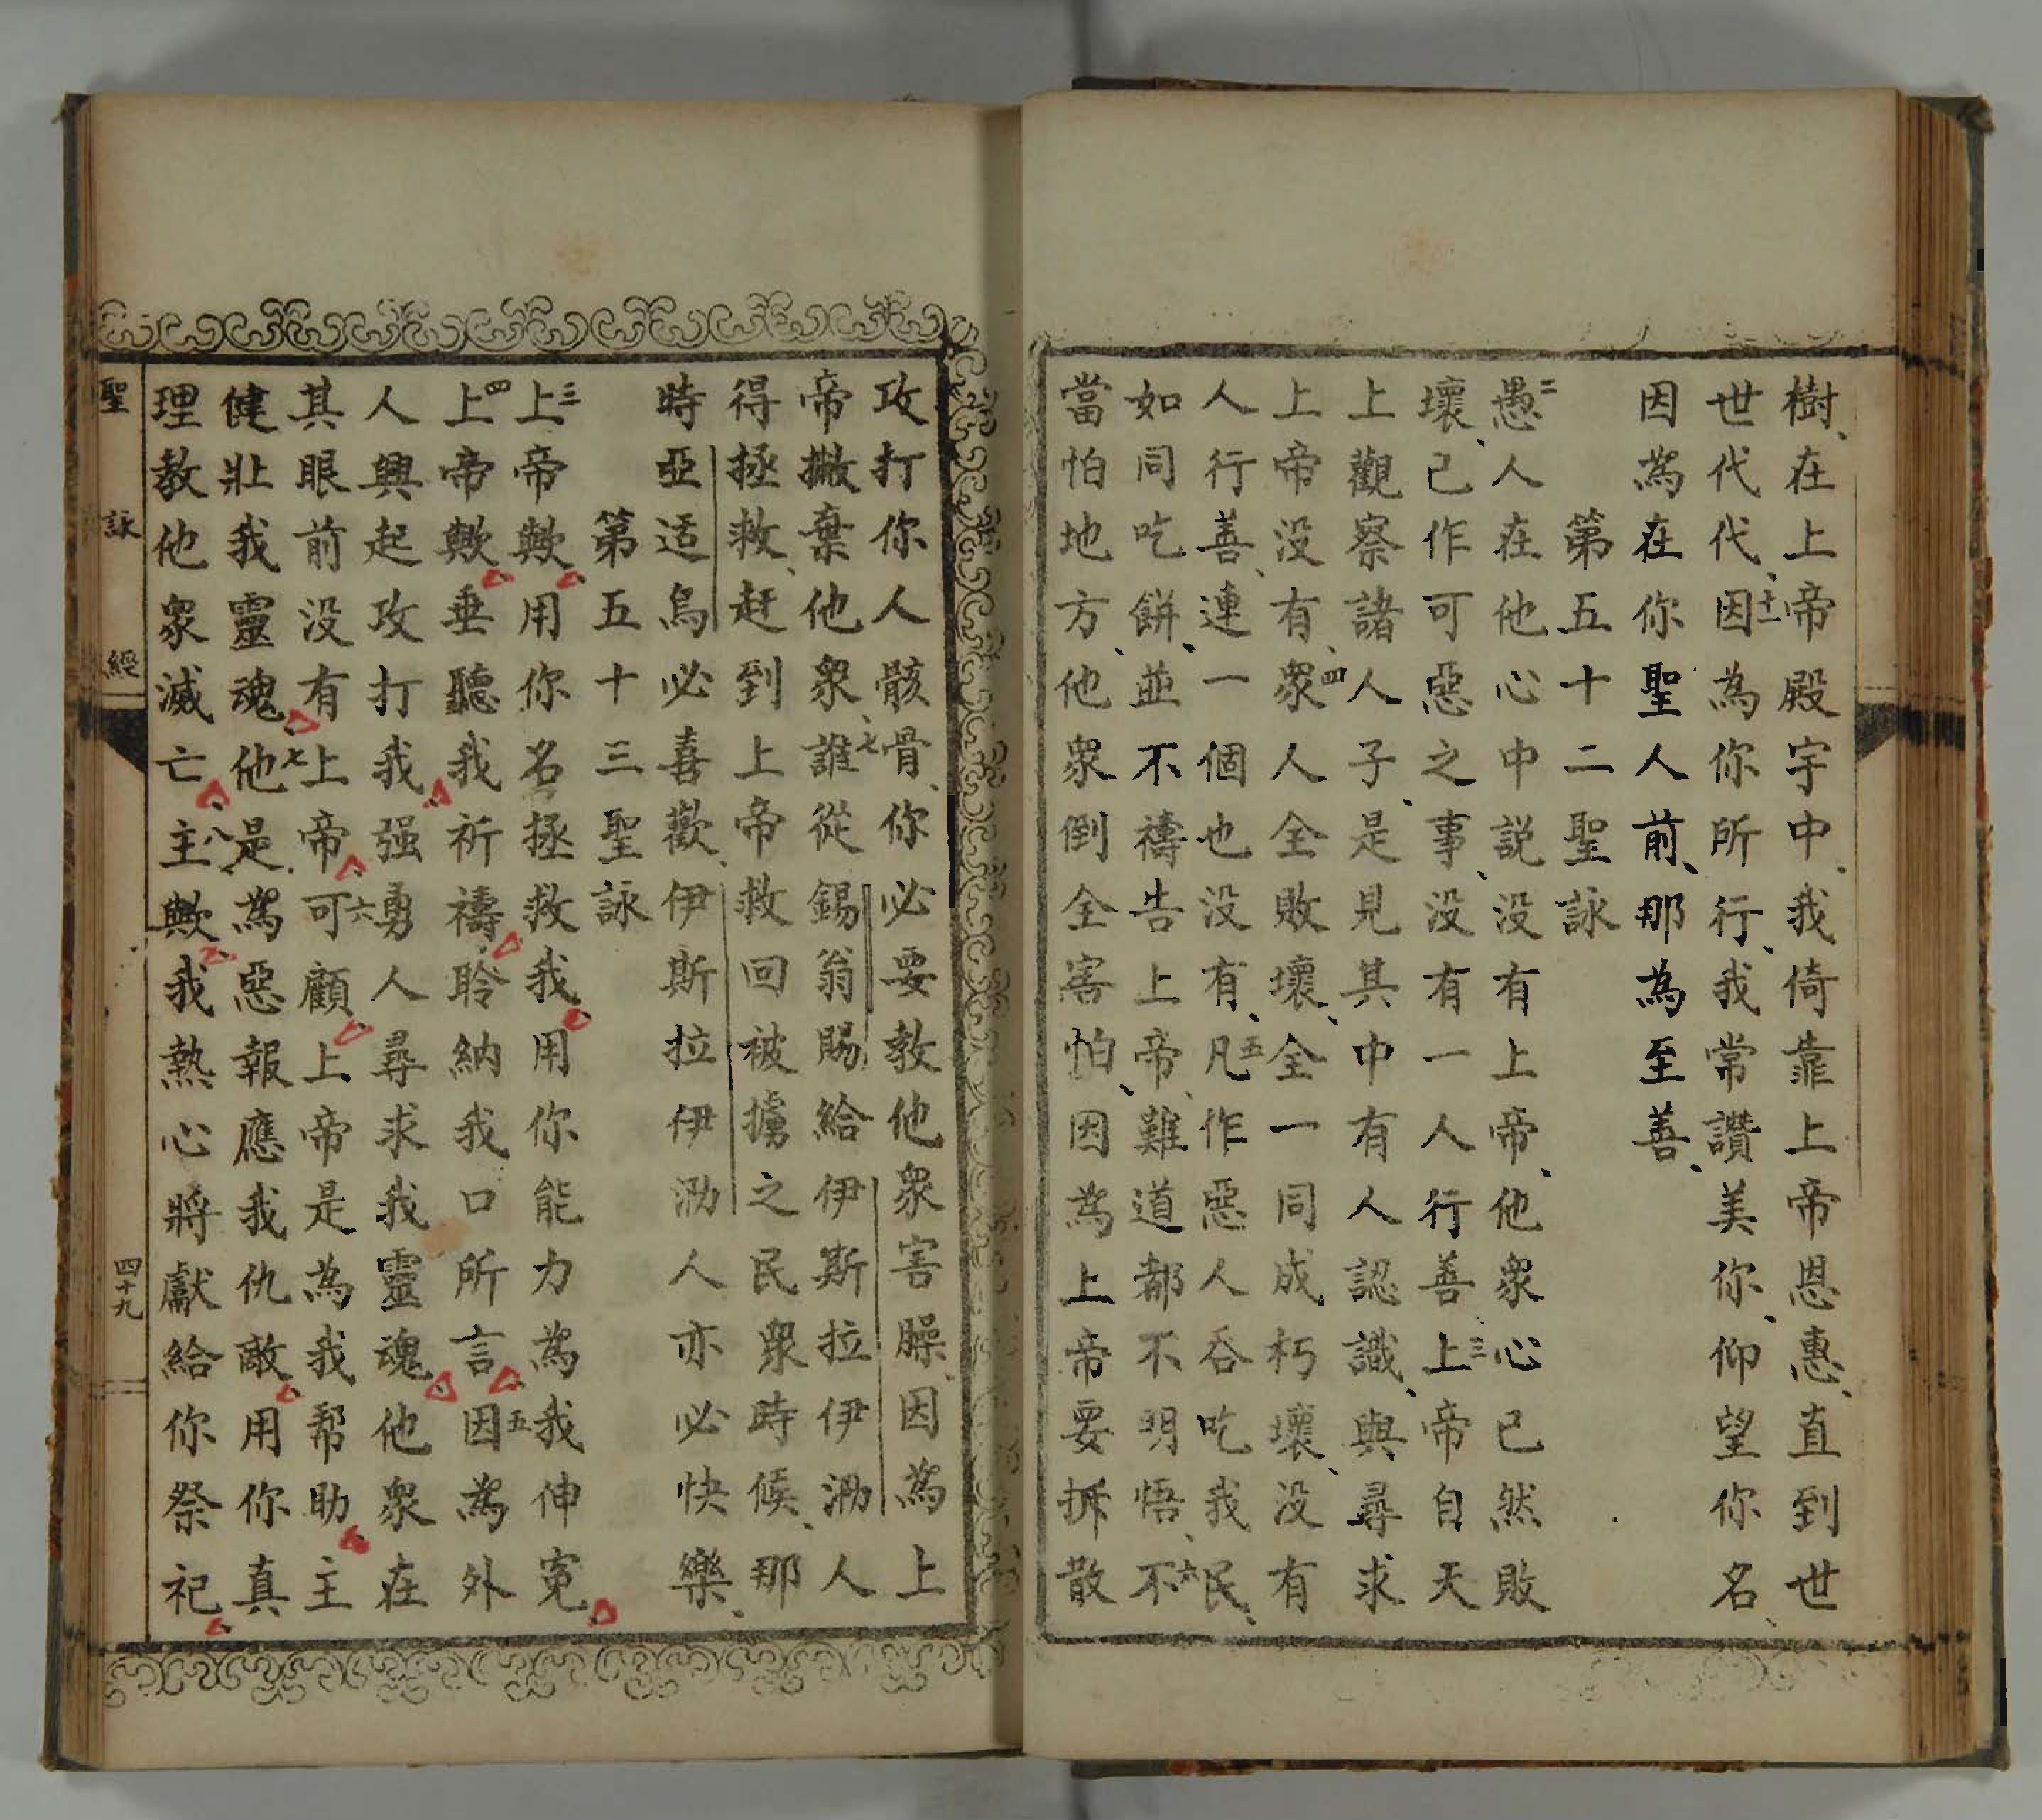 樹、在上帝殿宇中、我倚靠上帝恩惠、直到世
世代代、十一因為你所行、我常讚美你、仰望你名、
因為在你聖人前、那為至善、
第五十二聖詠
二愚人在他心中説没有上帝、他衆心已然敗
壞、己作可惡之事、没有一人行善、三上帝自天
上觀察諸人子、是見其中有人認識、與尋求
上帝没有、四衆人全敗壞、全一同成朽壞、没有
人行善、連一個也没有、五凡作惡人吞吃我民、
如同吃餅、並不禱告上帝、難道都不明悟、六不
當怕地方、他衆倒全害怕、因為上帝要拆散
攻打你人骸骨、你必要教他衆害臊、因為上
帝撇棄他衆、七誰從錫翁賜給伊斯拉伊泐人
得拯救、赶到上帝救回被擄之民衆時候、那
時亞适烏必喜歡、伊斯拉伊泐人亦必快樂、
第五十三聖詠
三上帝歟用你名拯救我用你能力為我伸寃
四上帝歟垂聽我祈禱聆納我口所言五因為外
人興起攻打我强勇人尋求我靈魂他衆在
其眼前没有上帝六可顧上帝是為我帮助主
健壯我靈魂七他是為惡報應我仇敵用你真
理教他衆滅亡八主歟我熱心將獻給你祭祀
聖詠經
四十九